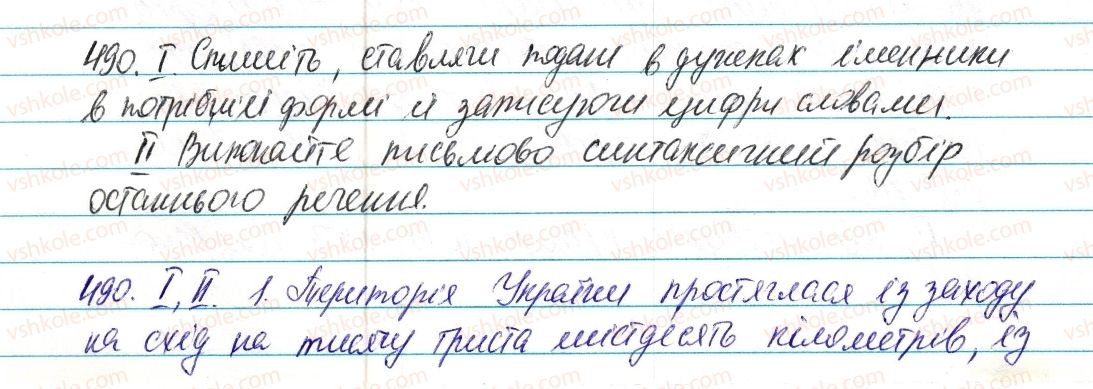 490. I. Спишіть, ставлячи подані в дужках іменники
в потрібній формі й записуючи цифри словами.
II Виконайте письмово синтаксичний розбір
останнього речення.
490. I, II. 1. Територія України простяглася із заходу
на схід на тисячу триста шістдесять кілометрів, із